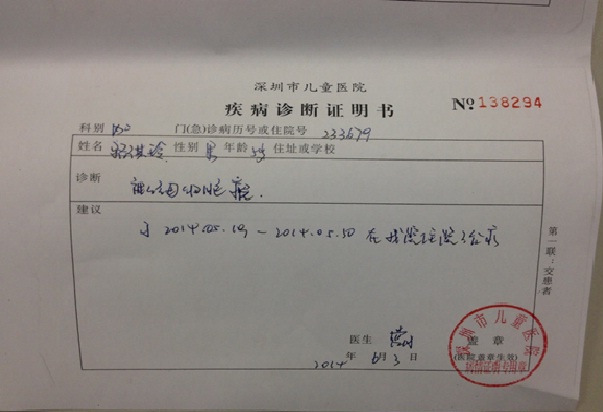 深圳市儿童医院
疾病诊断证明书 № 138294
科别 门(急)诊病历号或住院号 233679
姓名 性别 男 年龄 住址或学校
诊断
建议
于 2014.05.19 - 2014.05.30 在我院住院治疗
第一联：交患者
医生 盖章
2014 年 6 月 3 日 (医院盖章生效)
深圳市儿童医院
疾病证明专用章